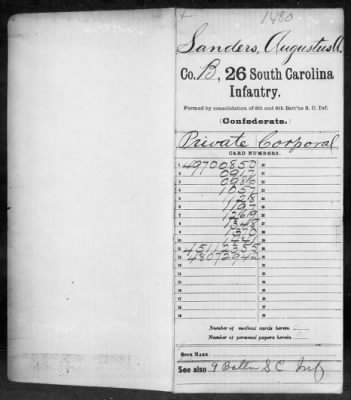 1480
Sanders, Augustus
Co. B, 26 South Carolina
Infantry.
Formed by consolidation of 6th and 9th Batt'ns S. C. Inf.
(Confederate.)
Private Corporal
CARD NUMBERS.
1 49700850
2 0917
3
4 1057
5
6 1197
7 12619
8 1348
9 1370
10 1441
11 45112355
12 48072942
Number of medical cards herein
Number of personal papers herein
BOOK MARK
See also 9 Battn S C Inf